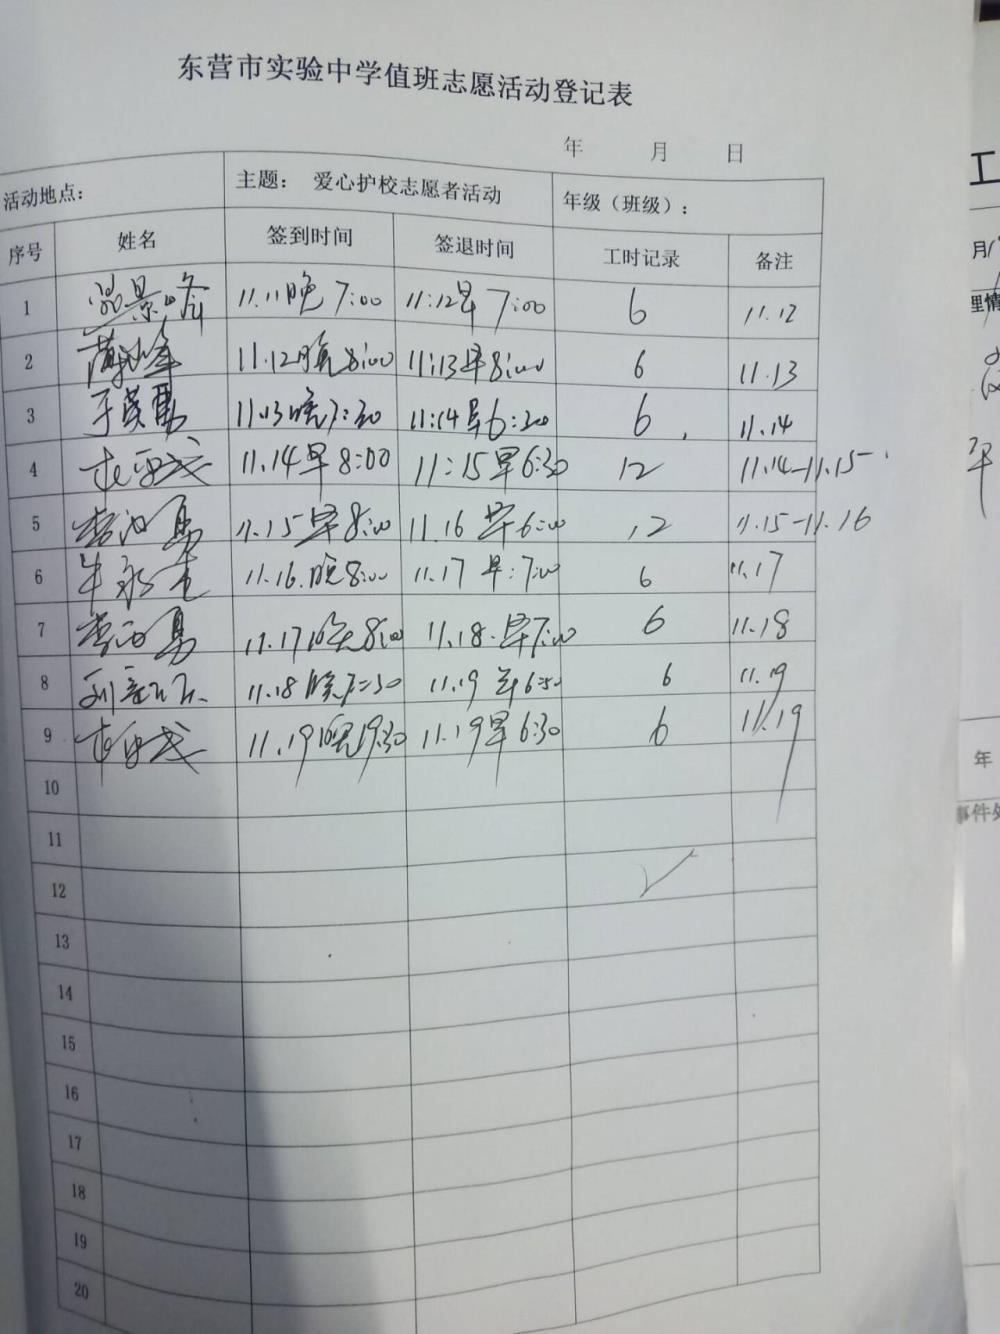 东营市实验中学值班志愿活动登记表
年 月 日
活动地点: 主题: 爱心护校志愿者活动 年级（班级）:
序号 姓名 签到时间 签退时间 工时记录 备注
1 景峰 11.11晚 7:00 11:12早 7:00 6 11.12
2 11.12晚8:00 11:13早8:00 6 11.13
3 于英勇 11.13晚7:30 11:14早6:30 6 11.14
4 11.14早8:00 11:15早6:30 12 11.14-11.15
5 11.15早8:00 11.16早6:00 12 11.15-11.16
6 牛永 11.16.晚8:00 11.17早:7:00 6 11.17
7 11.17晚8:00 11.18.早7:00 6 11.18
8 11.18晚7:30 11.19早6:50 6 11.19
9 11.19晚19:30 11.19早6:30 6 11.19
10
11
12
13
14
15
16
17
18
19
20
工
月
理情
年
事件处